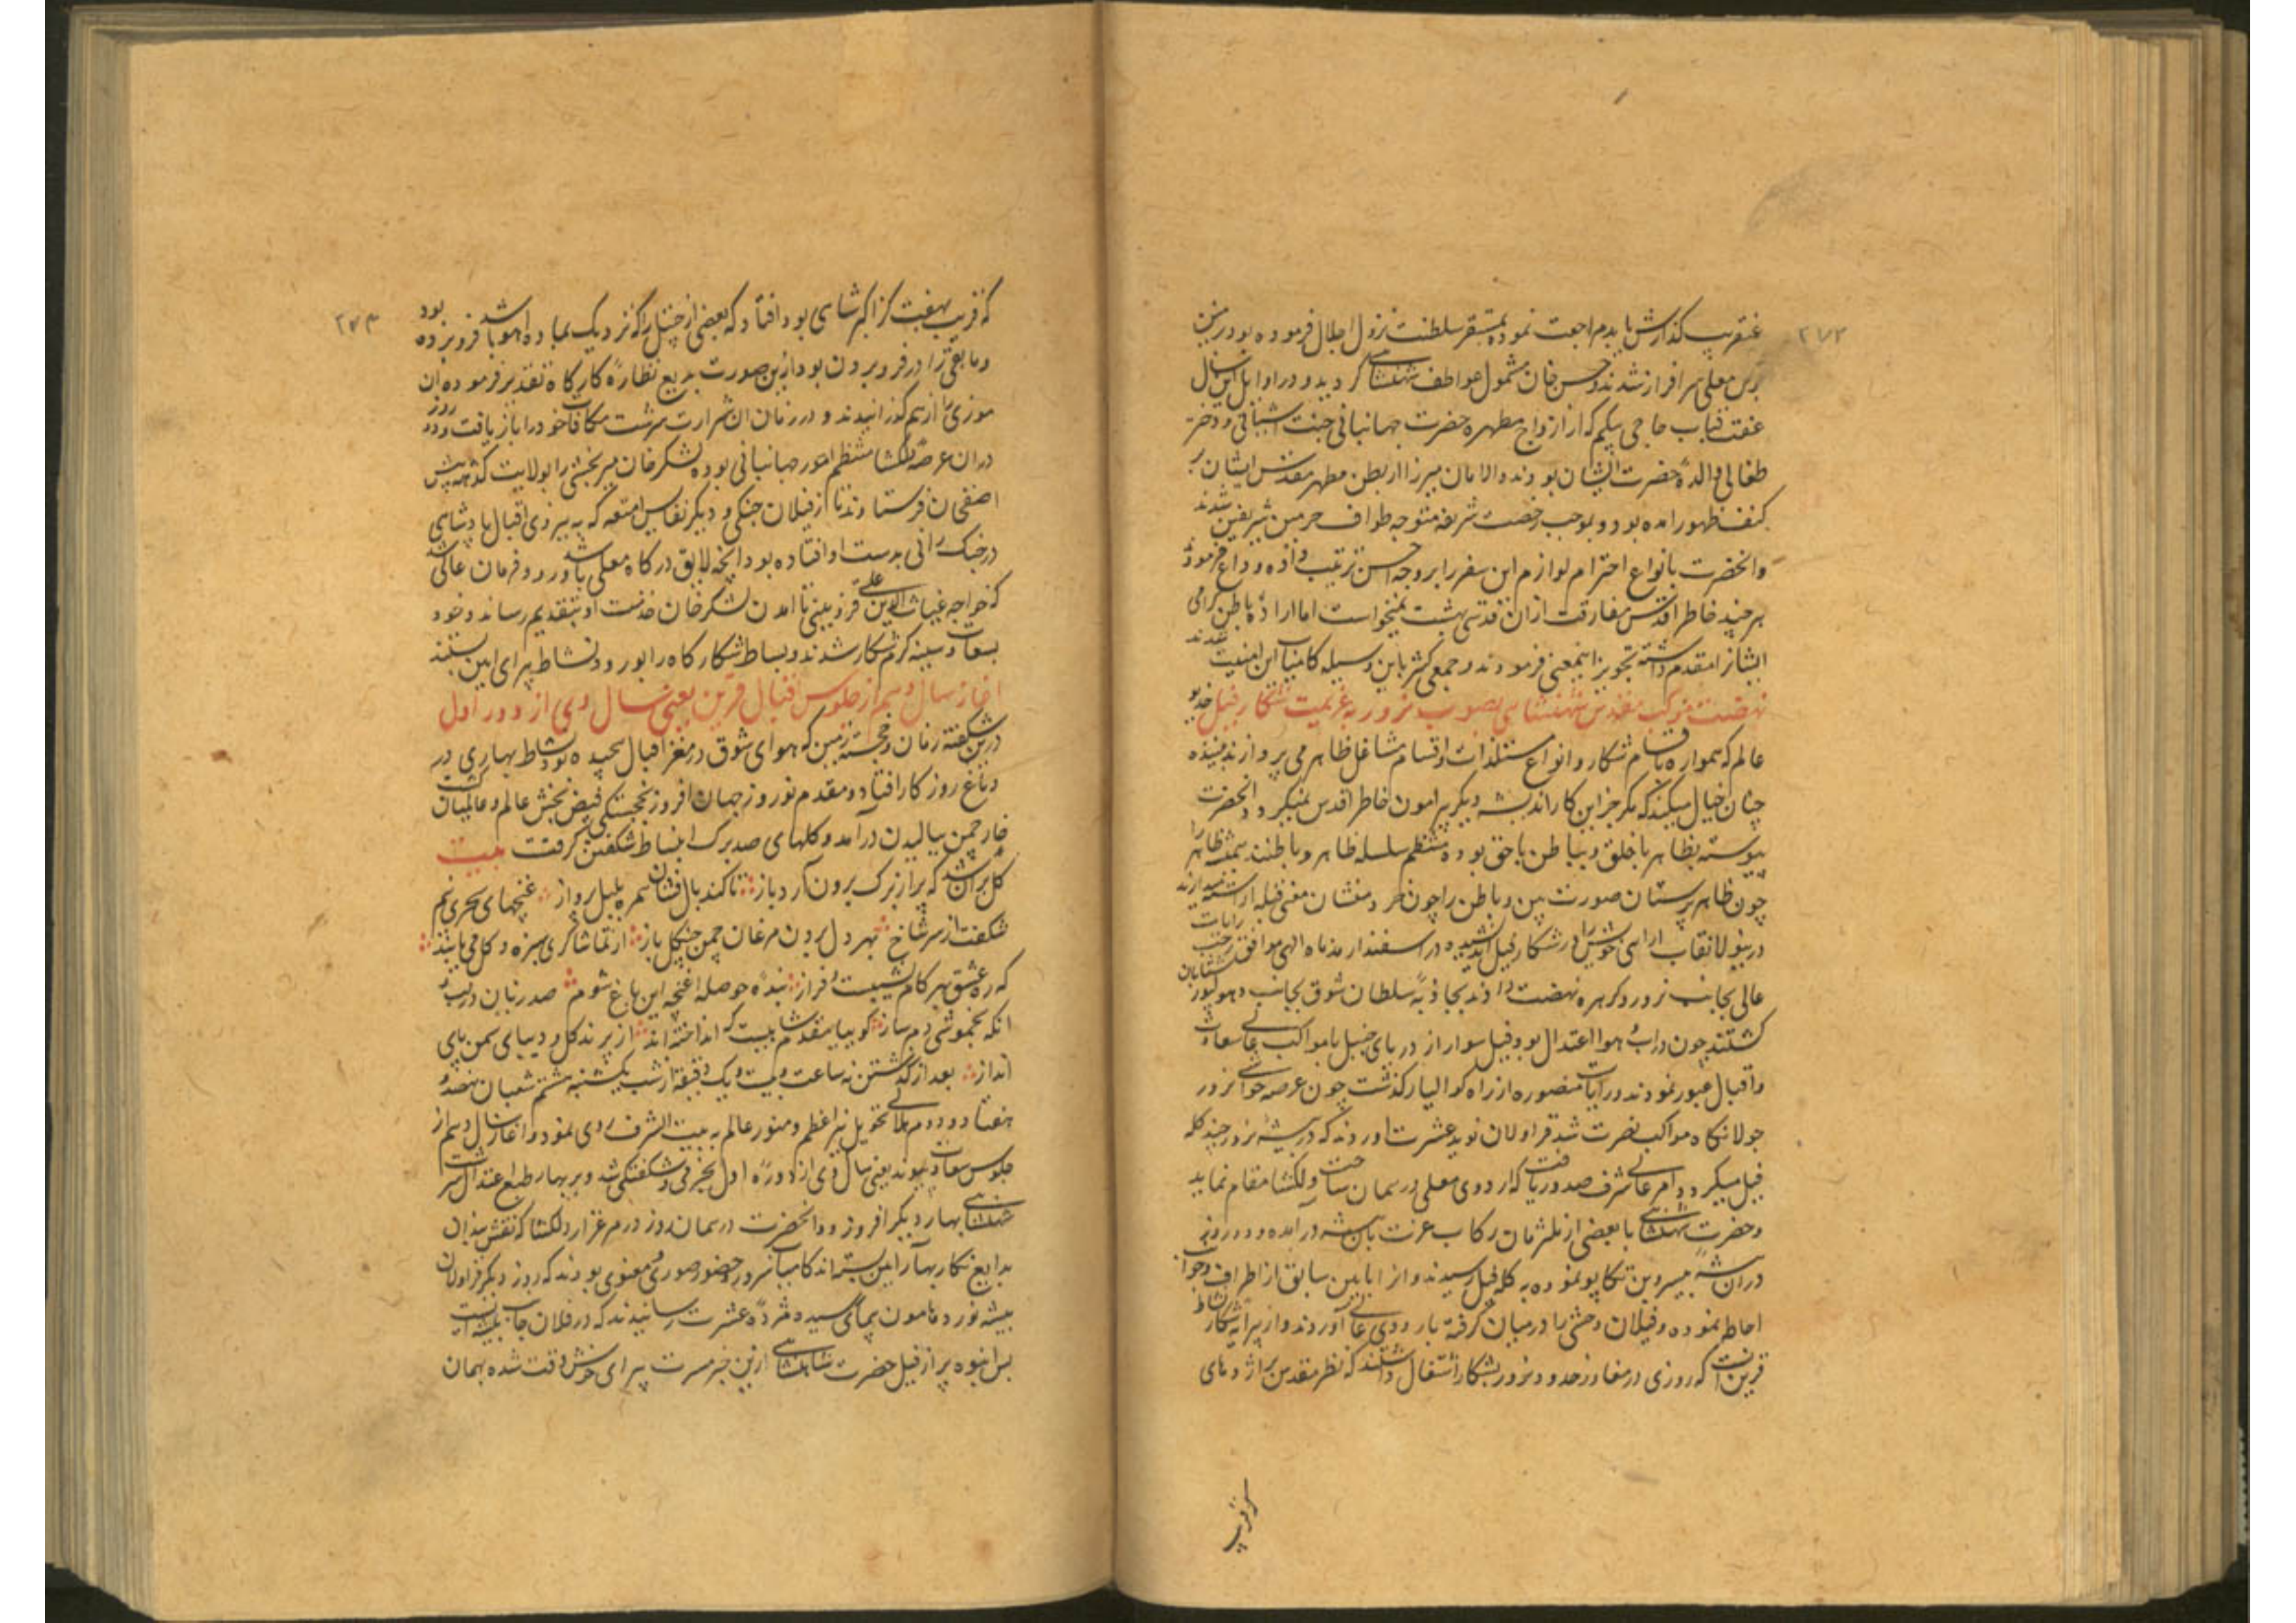 ۲۷۳
عنقریب گذارش یابد مراجعت نموده بمستقر سلطنت نزول اجلال فرموده بود درین
معلی سرافراز شدند و حسن خان مشمول عواطف شهنشاهی گردید و در اوایل این سال
عفت قباب حاجی بیگم که از ازواج مطهره حضرت جهانبانی جنت آشیانی و دختر
طغائی والدهٔ حضرت ایشان بودند و الامان میرزا از بطن مطهر مقدس ایشان بر
کنف ظهور آمده بود و بموجب رخصت شریفه متوجه طواف حرمین شریفین شدند
وانحضرت بانواع احترام لوازم این سفر را بر وجه احسن ترتیب داده وداع فرمود
هر چند خاطر اقدس مفارقت ازان قدسی سرشت نمیخواست اما ارادهٔ باطن گرامی
ایشانرا مقدم داشته تجویز اینمعنی فرمودند و جمعی کثیر باین وسیله کامیاب این امنیت شدند
نهضت موکب مقدس شهنشاهی بصوب نرور بعزیمت شکار فیل خدیو
عالم که همواره باقسام شکار و انواع مستلذات و اقسام مشاغل ظاهر می پردازند بیننده
چنان خیال میکند که مگر جز این کار اندیشه دیگر پیرامون خاطر اقدس نمیگردد و انحضرت
پیوسته بظاهر با خلق و بباطن با حق بوده منتظم سلسله ظاهر و باطنند همت ظاهر را
چون ظاهر پرستان صورت بین و باطن را چون خرد منشان معنی قبله آراسته میدارند
درینولا نقاب آرائی خویش را در شکار فیل اندیشیده در اسفندارمذ ماه الهی موافق رجب رایات
عالی بجانب نرور و کرهره نهضت دادند بجاذبهٔ سلطان شوق بجانب دهولپور شتابان
گشتند چون در آب و هوا اعتدال بود فیل سوار از دریای چنبل با مواکب عالی سعادت
و اقبال عبور نمودند و رایات منصوره از راه کوالیار گذشت چون عرصه حوالی نرور
جولانگاه مواکب نصرت شد قراولان نوید عشرت اوردند که در بیشه نرور چند گله
فیل میگردد و امر عالی شرف صدور یافت که اردوی معلی در همان ساحت دلکشا مقام نماید
و حضرت شهنشاهی با بعضی از ملتزمان رکاب عزت باین بیشه درآمده و دو روز
دران بیشه بسروبن تکاپو نموده به گله فیل رسیدند و از ابایین سابق از اطراف و جوانب
احاطه نموده و فیلان وحشی را درمیان گرفته باردوی عالی آوردند و از پیرایه شکار نشاط
قرین انست که روزی در مفاوز حدود نرور بشکار اشتغال داشتند که نظر مقدس بر اژدهای
که قریب
۲۷۴
که قریب بهفت گز اکبر شاهی بود افتاد که بعضی از چیتل را که نزدیک بماده آهو باشد فروبرده بود
و مابقی را در فروبردن بود ازین صورت بدیع نظارهٔ کارگاه تقدیر فرموده ان
موذی را از هم گذرانیدند و در زمان آن شرارت سرشت مکافات خود را باز یافت و دو روز
دران عرصه دلکشا منتظم امور جهانبانی بوده لشکر خان میر بخشی را بولایت گدهه پیش
اصفخان فرستادند تا از فیلان جنگی و دیگر نفایس امتعه که به پیروی اقبال پادشاهی
در جنگ رانی بدست او افتاده بود انچه لایق درگاه معلی باشد آورد و فرمان عالی شد
که خواجه غیاث الدین علی قزوینی تا آمدن لشکر خان خدمت او بتقدیم رساند و خود
بسعادت سینه گرم شکار شدند و بساط شکارگاه را بورود نشاط پیرای آیین بستند
آغاز سال دهم از جلوس اقبال قرین یعنی سال دی از دور اول
درین شگفته زمان و خجسته زمین که هوای شوق در مغز اقبال پیچیده بود و نشاط بهاری در
دماغ روزگار افتاد و مقدم نوروز جهان افروز بخجستگی فیض بخش عالم و عالمیان گشت
خار چمن ببالیدن درآمد و گلهای صد برگ انبساط شگفتن گرفت بیت
گل بران شد که پر از برگ برون آرد باز تا کند بال فشان همره بلبل پرواز غنچهای سحری نیم
شگفت از سر شاخ بهر دل بردن مرغان چمن چنگل باز از تماشاگری سبزه و گل می یابند
که ره عشق بهر گام نشیبست و فراز بندهٔ حوصله غنچه این باغ شوم صد زبان در لب و
انکه بخموشی دمساز گو بیا بمقدم شاهیست که انداخته اند از پرند گل و دیبای سمن پای
انداز بعد از گذشتن نه ساعت و بیست و یک دقیقه از شب یکشنبه هشتم شعبان نهصد و
هفتاد و دوم هلالی تحویل نیر اعظم و منور عالم به بیت الشرف روی نمود و آغاز سال دهم از
جلوس سعادت پیوند یعنی سال دی از دورهٔ اول بخرمی و شگفتگی شد و بر بهار طبع اعتدال سرشت
شهنشاهی بهار دیگر افزود و انحضرت در همان روز در مرغزار دلکشا که نقش بندان
بدایع نگار بهار آیین بسته اند کامیاب سرور حضور صوری و معنوی بودند که روز دیگر قراولان
بیشه نورد هامون پیمای رسیده مژدهٔ عشرت رسانیدند که در فلان جانب بیشه ایست
بس انبوه پر از فیل حضرت شاهنشاهی ازین خبر مسرت پیرای خوش وقت شده بهمان